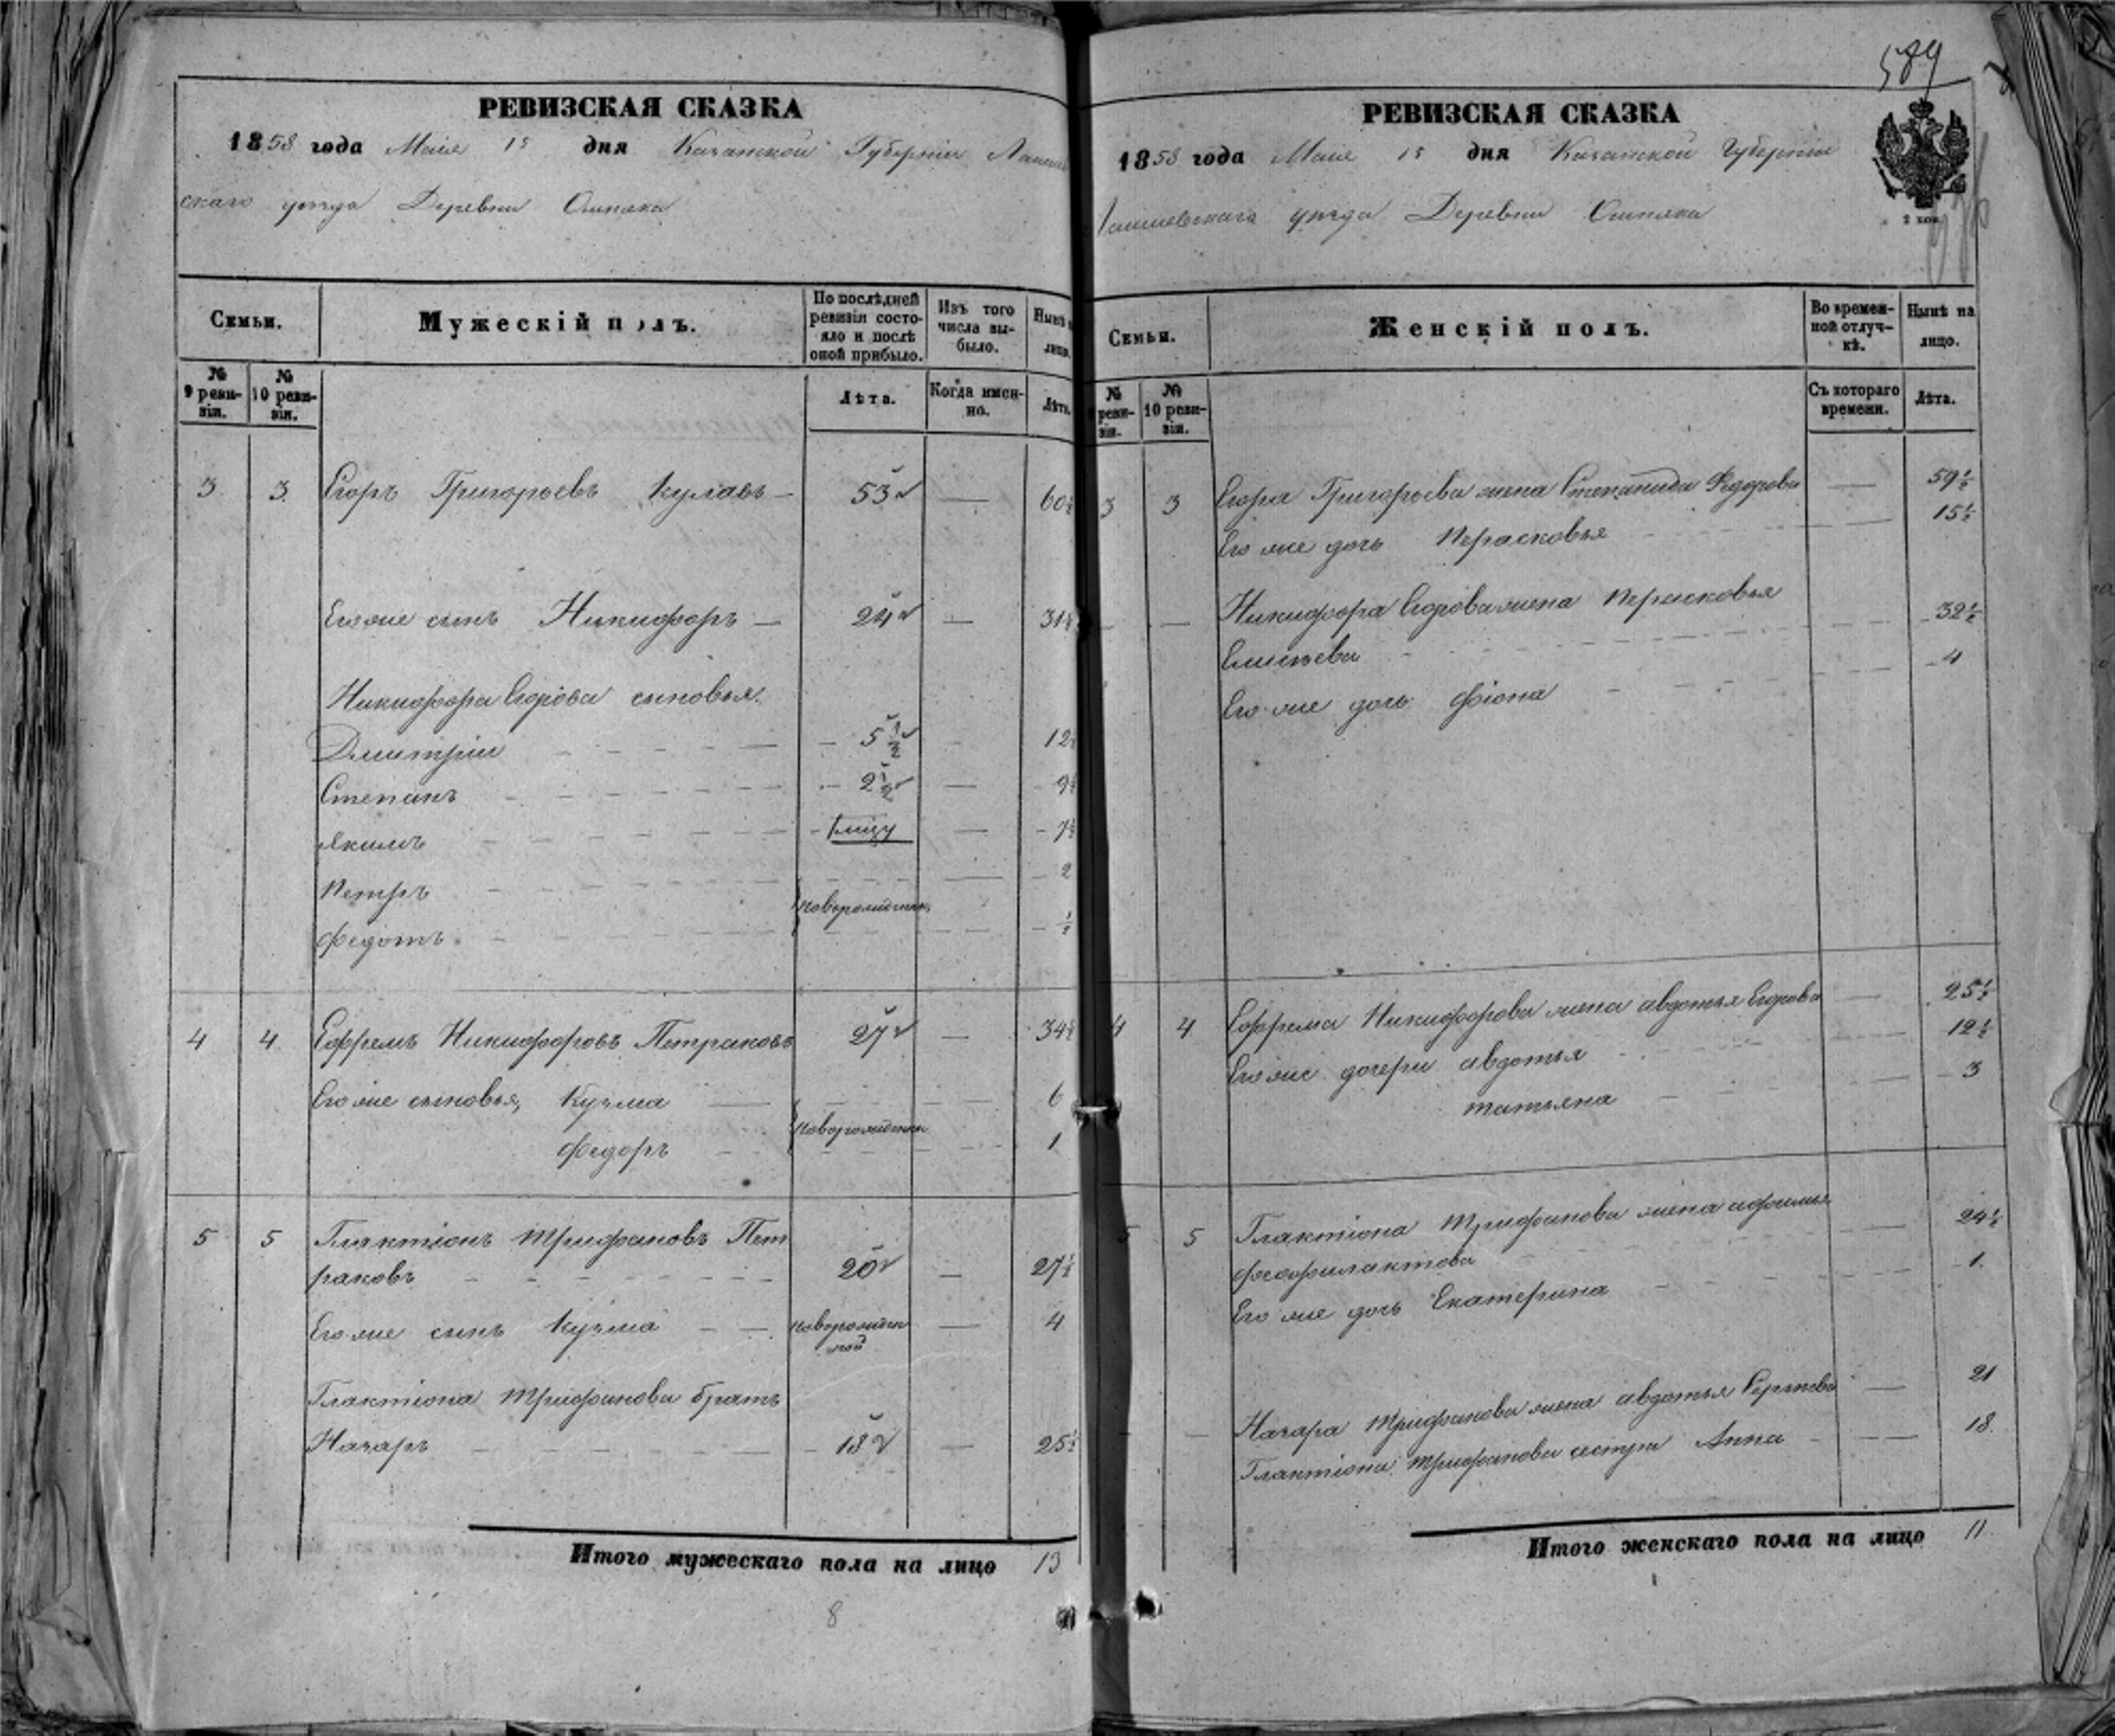 589
РЕВИЗСКАЯ СКАЗКА
1858 года Маiя 15 дня Казанской Губернiи Лаишев
скаго уѣзда Деревни Ошняка
Семьи.
Мужескій полъ.
По послѣдней ревизіи состояло и послѣ оной прибыло.
Изъ того числа выбыло.
Нынѣ на лицо.
№ 9 ревизіи.
№ 10 ревизіи.
Лѣта.
Когда именно.
Лѣта.
3 3 Егоръ Григорьевъ Кулавъ — 53 — 60½
Его же сынъ Никифоръ — 24 — 31½
Никифора Егорова сыновья.
Дмитрiи 5½ 12½
Степанъ 2½ — 9½
Якимъ — 7½
Петръ — 2
Новорожденн.
Федотъ ½
4 4 Ефремъ Никифоровъ Петраковъ 27 — 34½
Его же сыновья, Кузма 6
Новорожденн
Федоръ 1
5 5 Глактiонъ Трифановъ Пет
раковъ 20 — 27½
Его же сынъ Кузма Новорожден — 4
ной
Глактiона Трифанова братъ
Назаръ 18 — 25½
Итого мужескаго пола на лицо 13
8
РЕВИЗСКАЯ СКАЗКА
1858 года Маiя 15 дня Казанской Губернiи
Лаишевскага уѣзда Деревни Ошняка
2 коп.
Семьи.
Женскій полъ.
Во временной отлучкѣ.
Нынѣ на лицо.
№ 9 ревизіи.
№ 10 ревизіи.
Съ котораго времени.
Лѣта.
3 3 Егора Григорьева жена Степанида Федорова — 59½
Его же дочь Перасковья — 15½
— — Никифора Егорова жена Перасковья 32½
Елисѣева 4
Его же дочь Фiона
4 4 Ефрема Никифорова жена авдотья Егорова — 25½
Его же дочери авдотья 12½
татьяна 3
5 5 Глактiона Трифанова жена афимья — 24½
Феофилактова 1
Его же дочь Екатерина
— — Назара Трифанова жена авдотья Сергѣева — 21
Глактiона Трифанова сестра Анна — 18
Итого женскаго пола на лицо 11